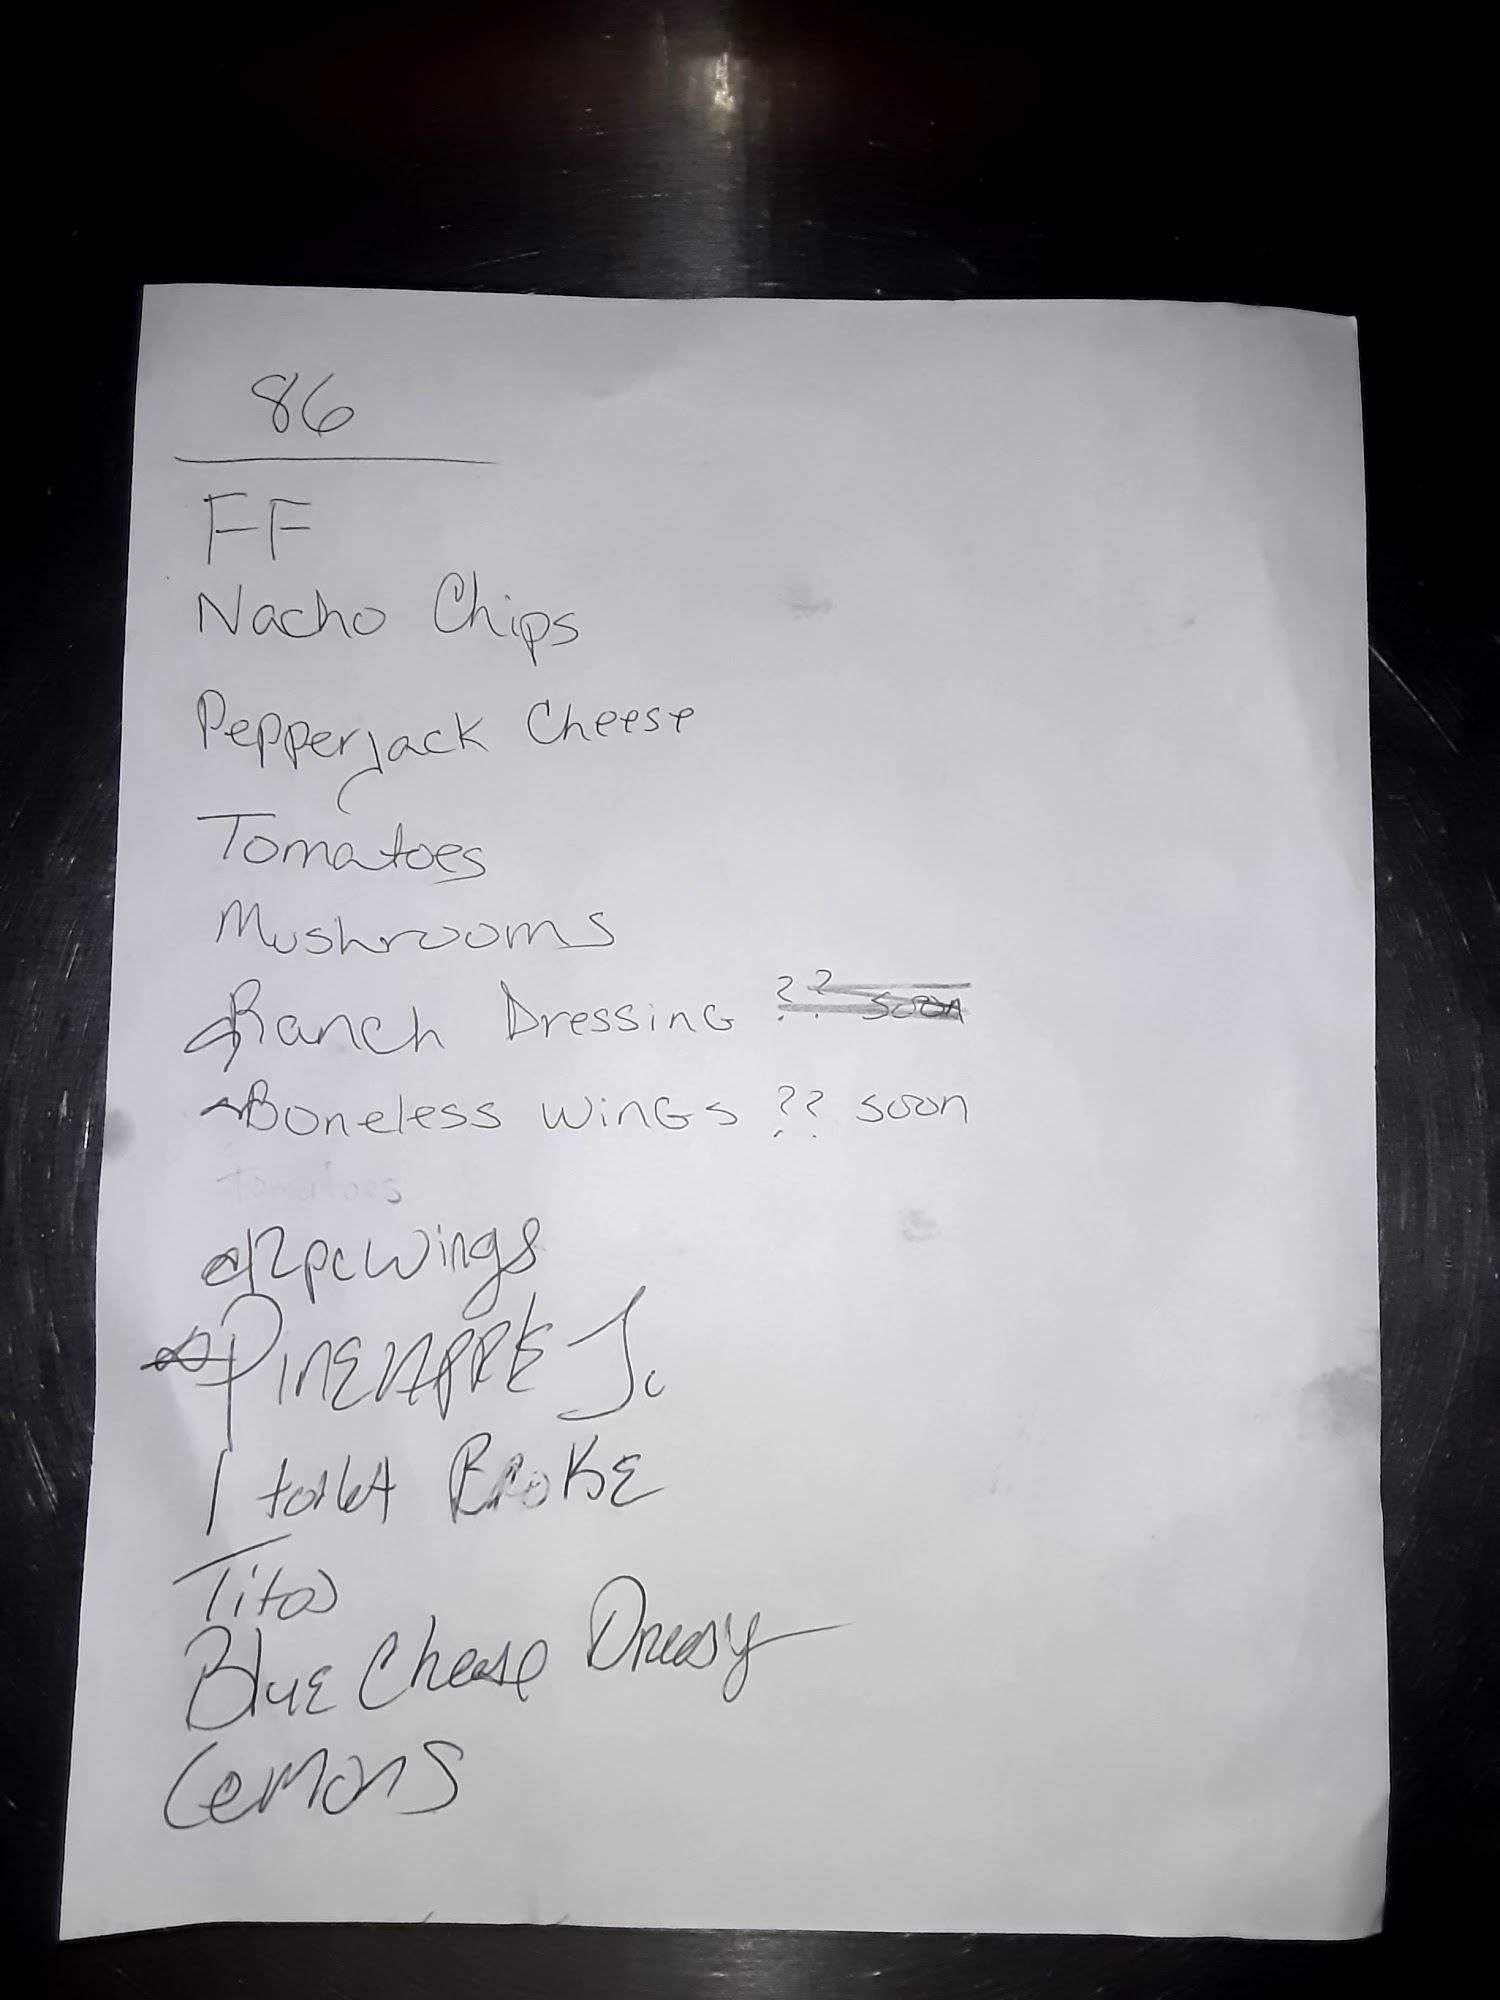 86
FF
Nacho Chips
Pepperjack Cheese
Tomatoes
Mushrooms
Ranch Dressing ?? soon
Boneless wings ?? soon
Tomatoes
12pc wings
PINEAPPLE J.
1 toilet BROKE
Titos
Blue Cheese Dressing
Lemons